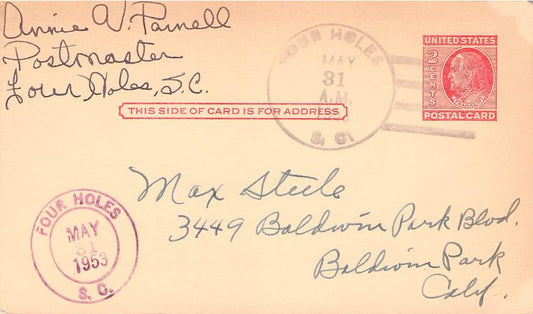 Annie V. Parnell
Postmaster
Four Holes, S.C.
FOUR HOLES
MAY
31
A.M.
S. C.
UNITED STATES
2 CENTS
FRANKLIN
POSTAL CARD
THIS SIDE OF CARD IS FOR ADDRESS
Max Steele
3449 Baldwin Park Blvd.
Baldwin Park
Calif.
FOUR HOLES
MAY
31
1953
S. C.